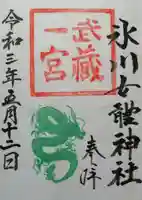 奉拝
氷川女體神社
武蔵
一宮
令和三年五月十二日